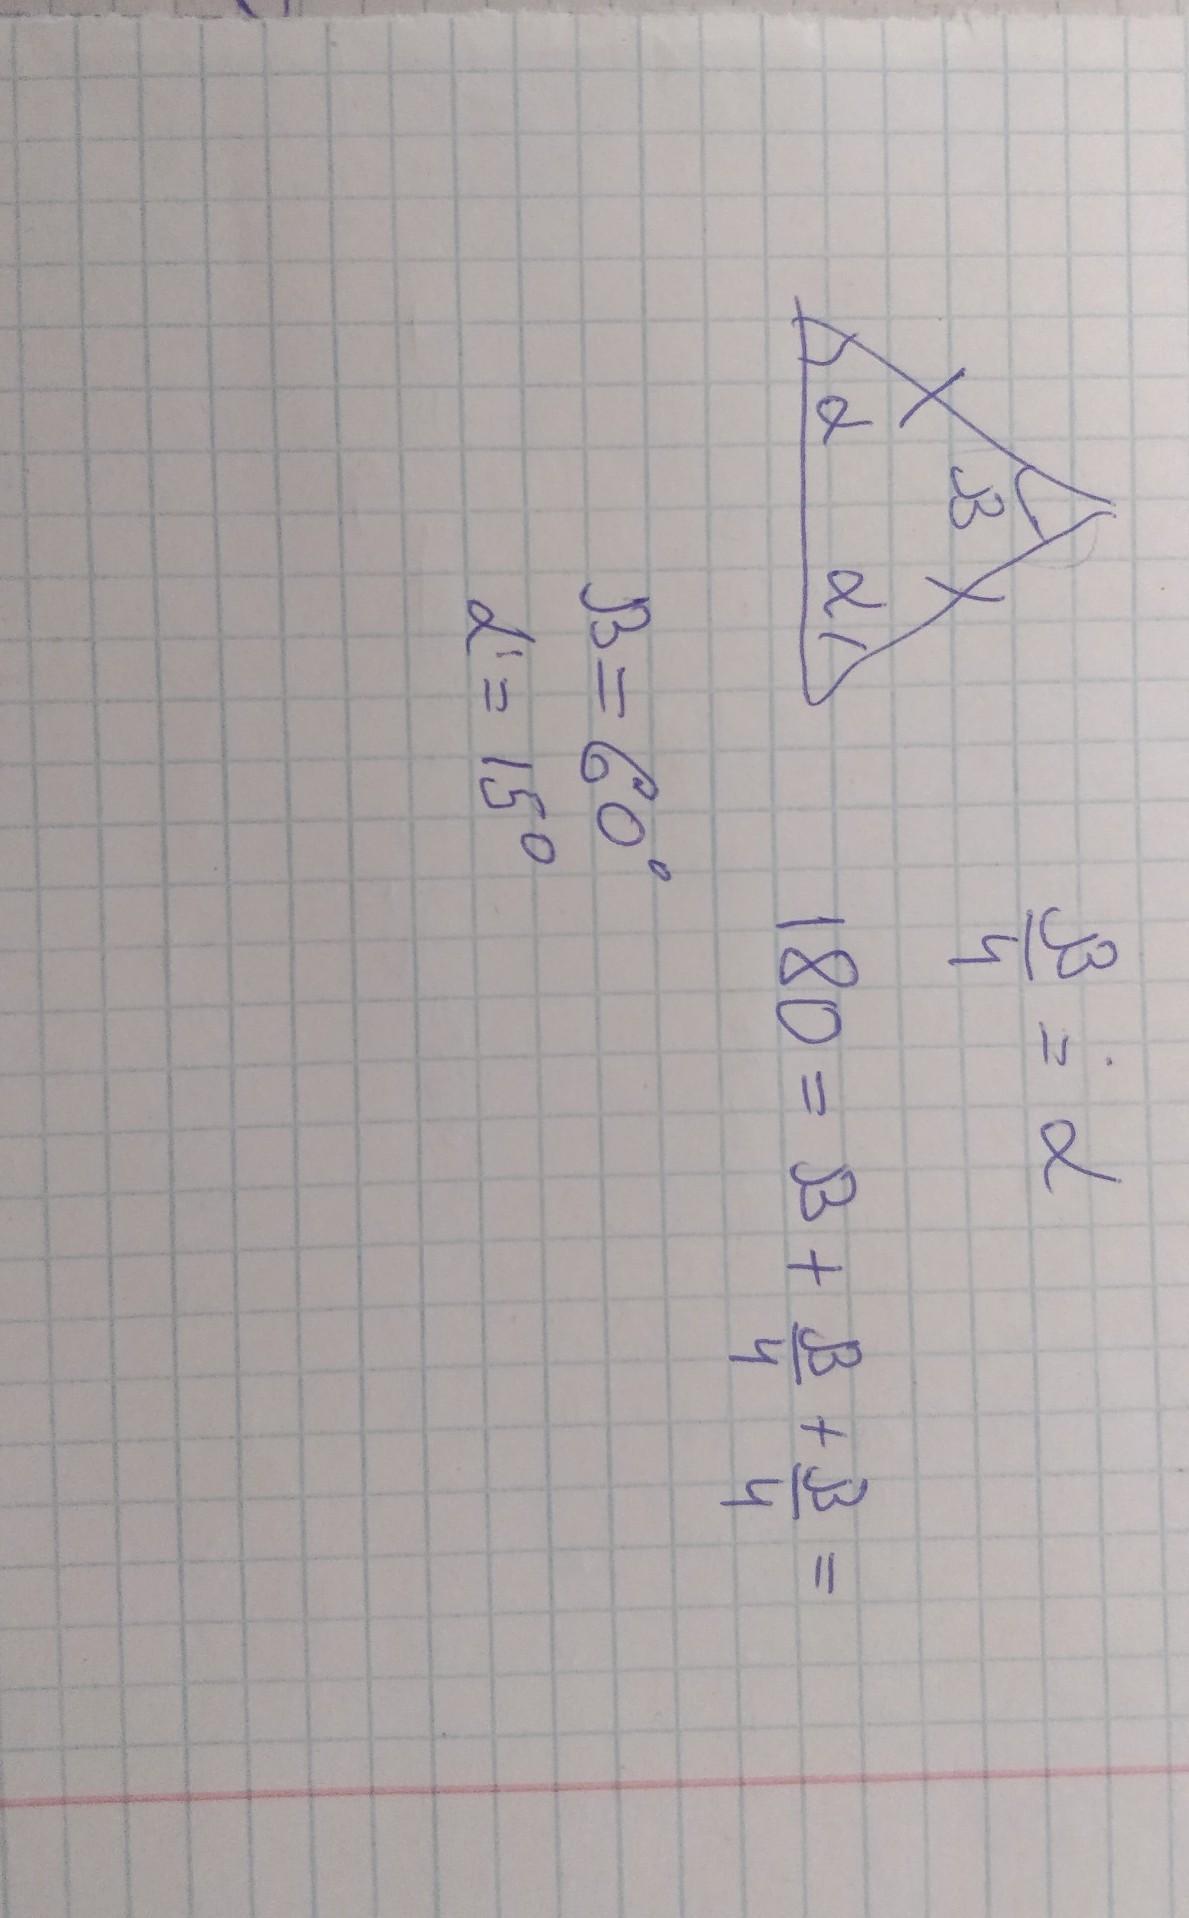 β/4 = α
β
α α
180 = β + β/4 + β/4 =
β = 60°
α = 15°